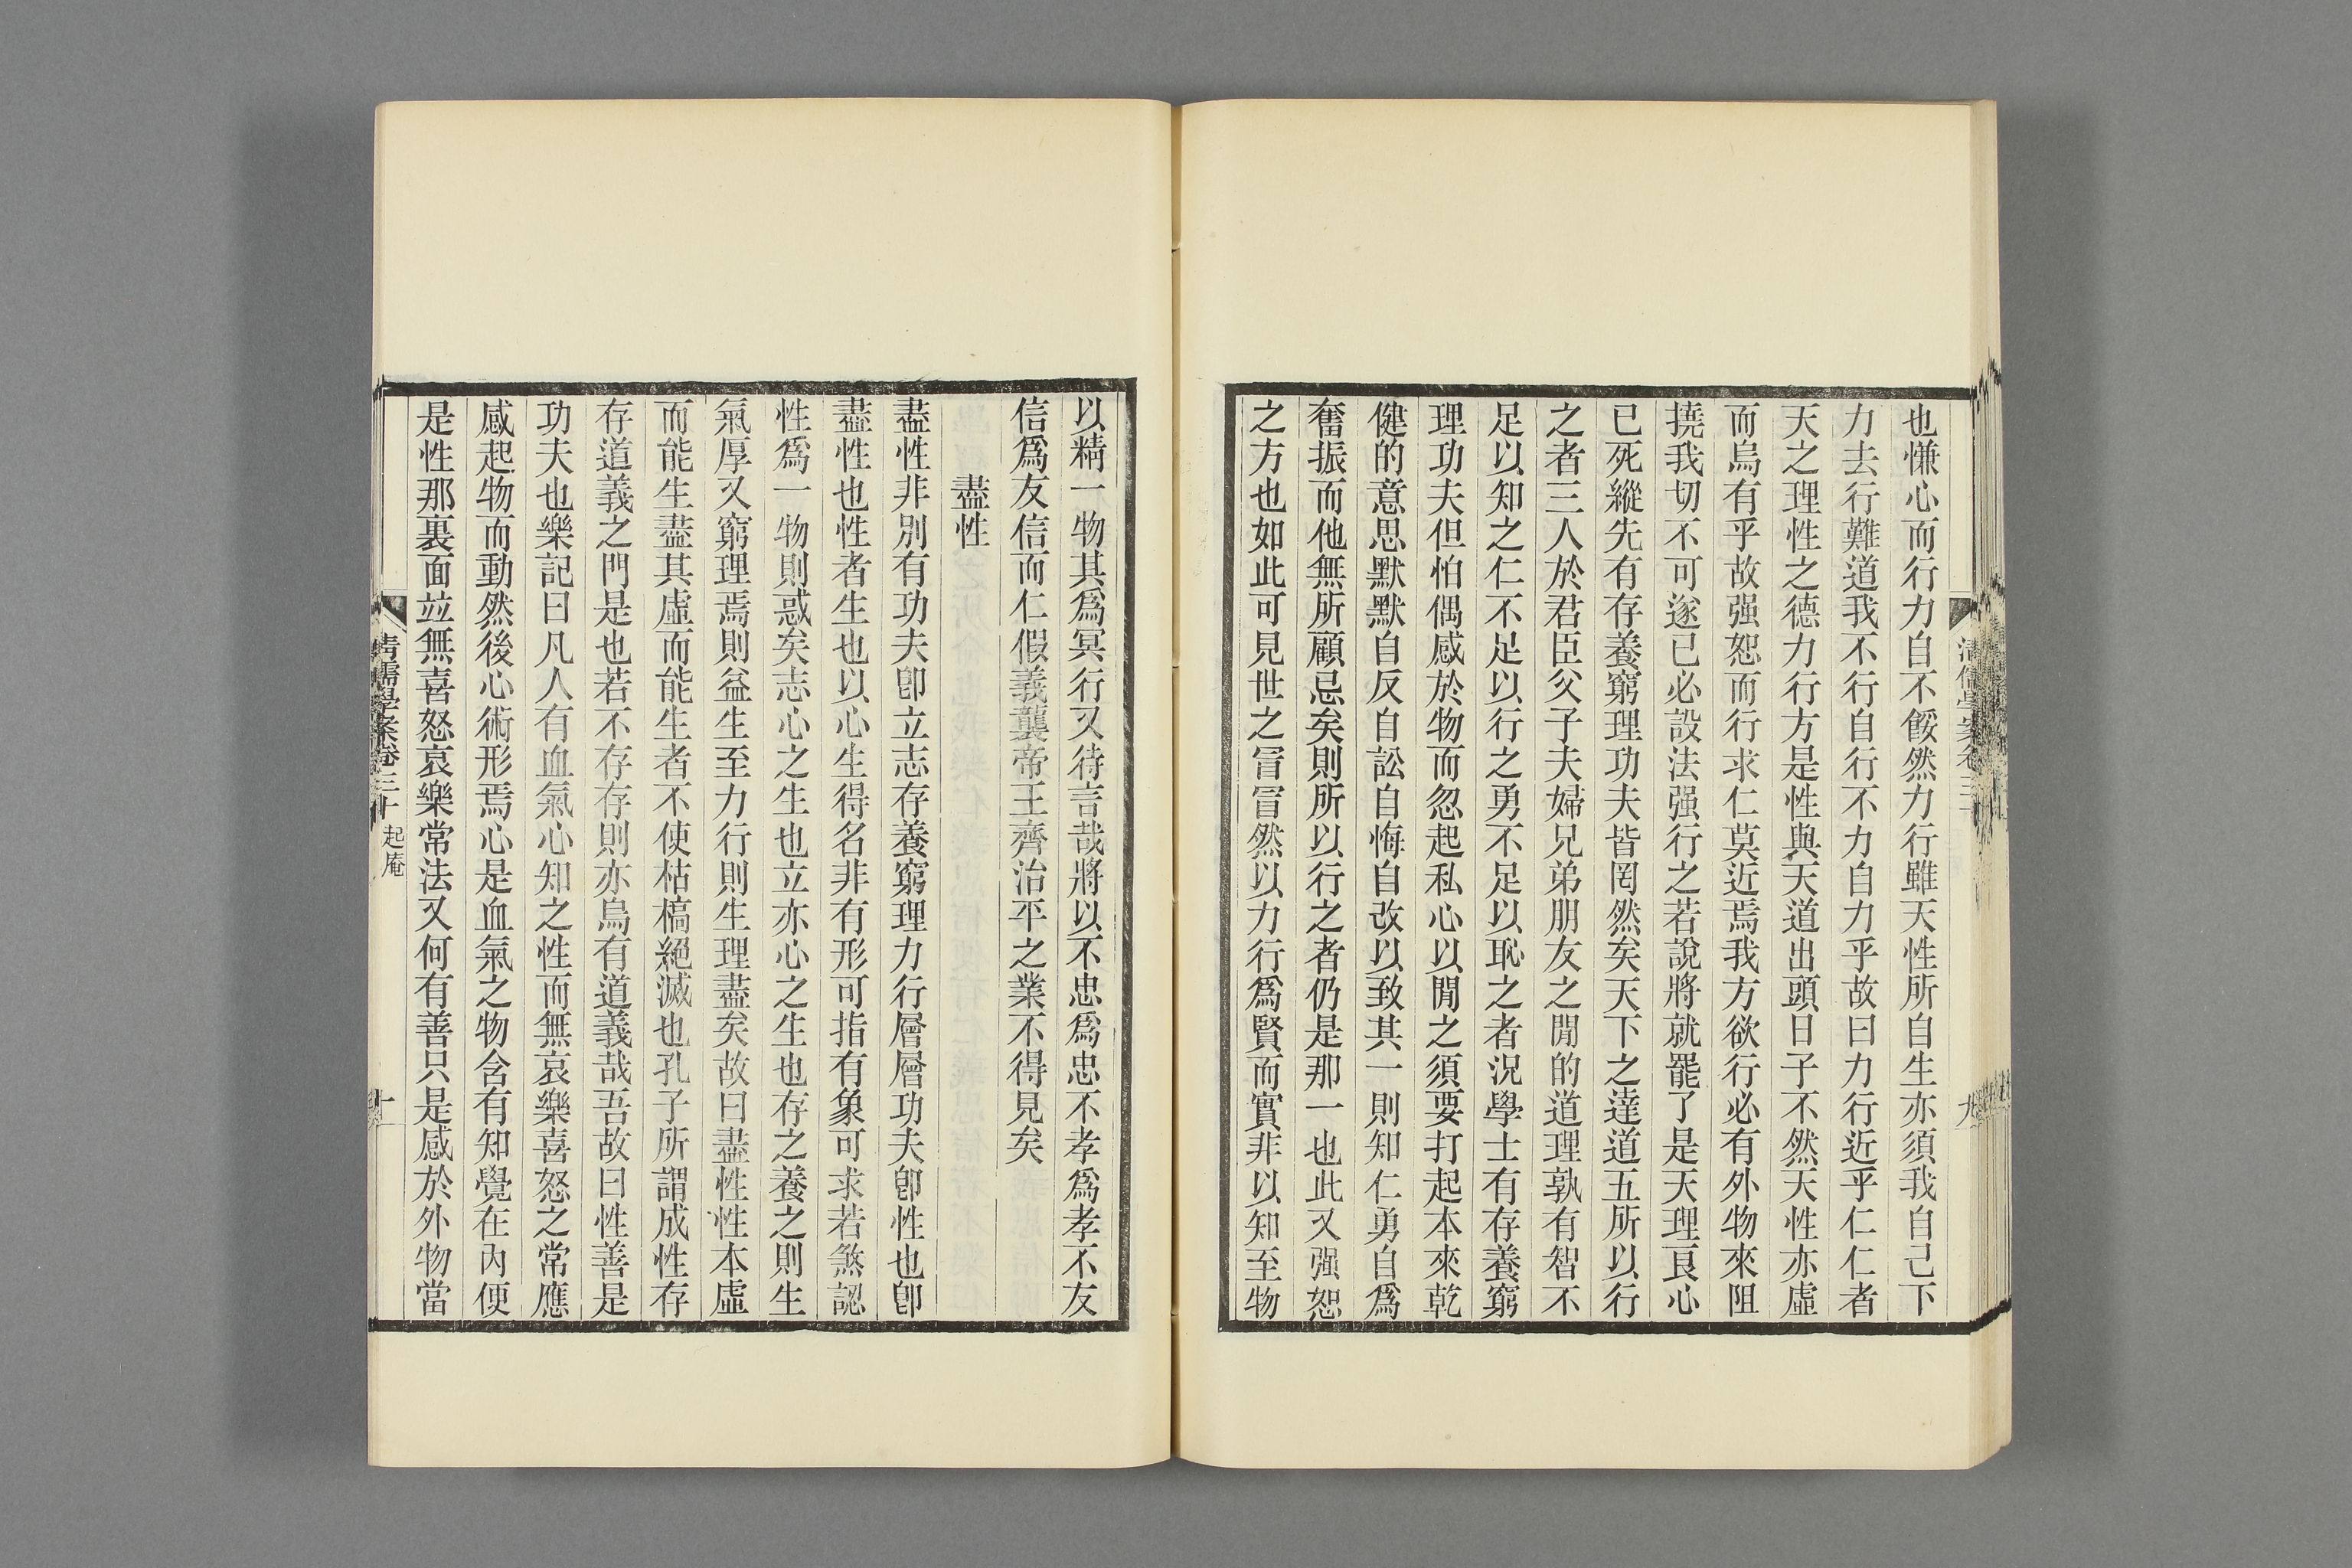 也慊心而行力自不餒然力行雖天性所自生亦須我自己下
力去行難道我不行自行不力自力乎故曰力行近乎仁仁者
天之理性之德力行方是性與天道出頭日子不然天性亦虛
而烏有乎故强恕而行求仁莫近焉我方欲行必有外物來阻
撓我切不可遂已必設法强行之若說將就罷了是天理良心
已死縱先有存養窮理功夫皆罔然矣天下之達道五所以行
之者三人於君臣父子夫婦兄弟朋友之閒的道理孰有智不
足以知之仁不足以行之勇不足以恥之者況學士有存養窮
理功夫但怕偶感於物而忽起私心以閒之須要打起本來乾
健的意思默默自反自訟自悔自改以致其一則知仁勇自爲
奮振而他無所顧忌矣則所以行之者仍是那一也此又强恕
之方也如此可見世之冒冒然以力行爲賢而實非以知至物
清儒學案卷三十
九
以精一物其爲冥行又待言哉將以不忠爲忠不孝爲孝不友
信爲友信而仁假義襲帝王齊治平之業不得見矣
盡性
盡性非別有功夫卽立志存養窮理力行層層功夫卽性也卽
盡性也性者生也以心生得名非有形可指有象可求若煞認
性爲一物則惑矣志心之生也立亦心之生也存之養之則生
氣厚又窮理焉則益生至力行則生理盡矣故曰盡性性本虛
而能生盡其虛而能生者不使枯槁絕滅也孔子所謂成性存
存道義之門是也若不存存則亦烏有道義哉吾故曰性善是
功夫也樂記曰凡人有血氣心知之性而無哀樂喜怒之常應
感起物而動然後心術形焉心是血氣之物含有知覺在內便
是性那裏面竝無喜怒哀樂常法又何有善只是感於外物當
清儒學案卷三十 起庵
十